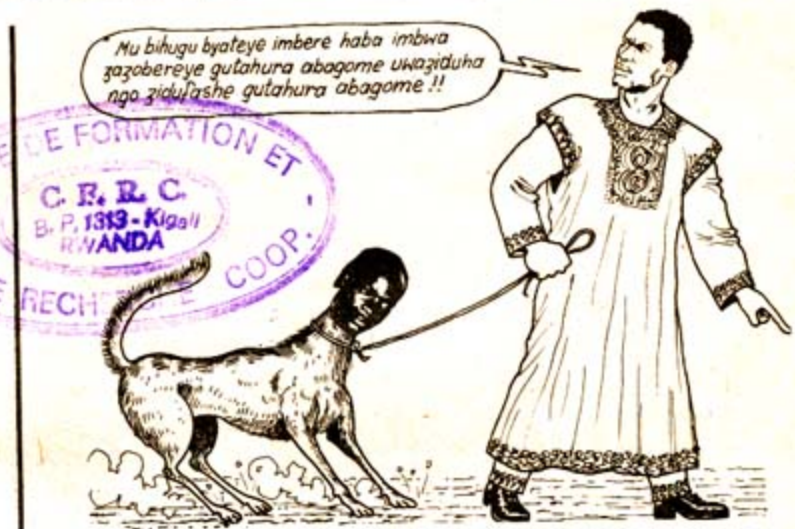 " Mu bihugu byateye imbere haba imbwa
zazobereye gutahura abagome uwaziduha
ngo zidufashe gutahura abagome !!
E DE FORMATION ET
C. F. R. C.
B. P. 1313 - Kigali
RWANDA
RECHERCHE COOP.